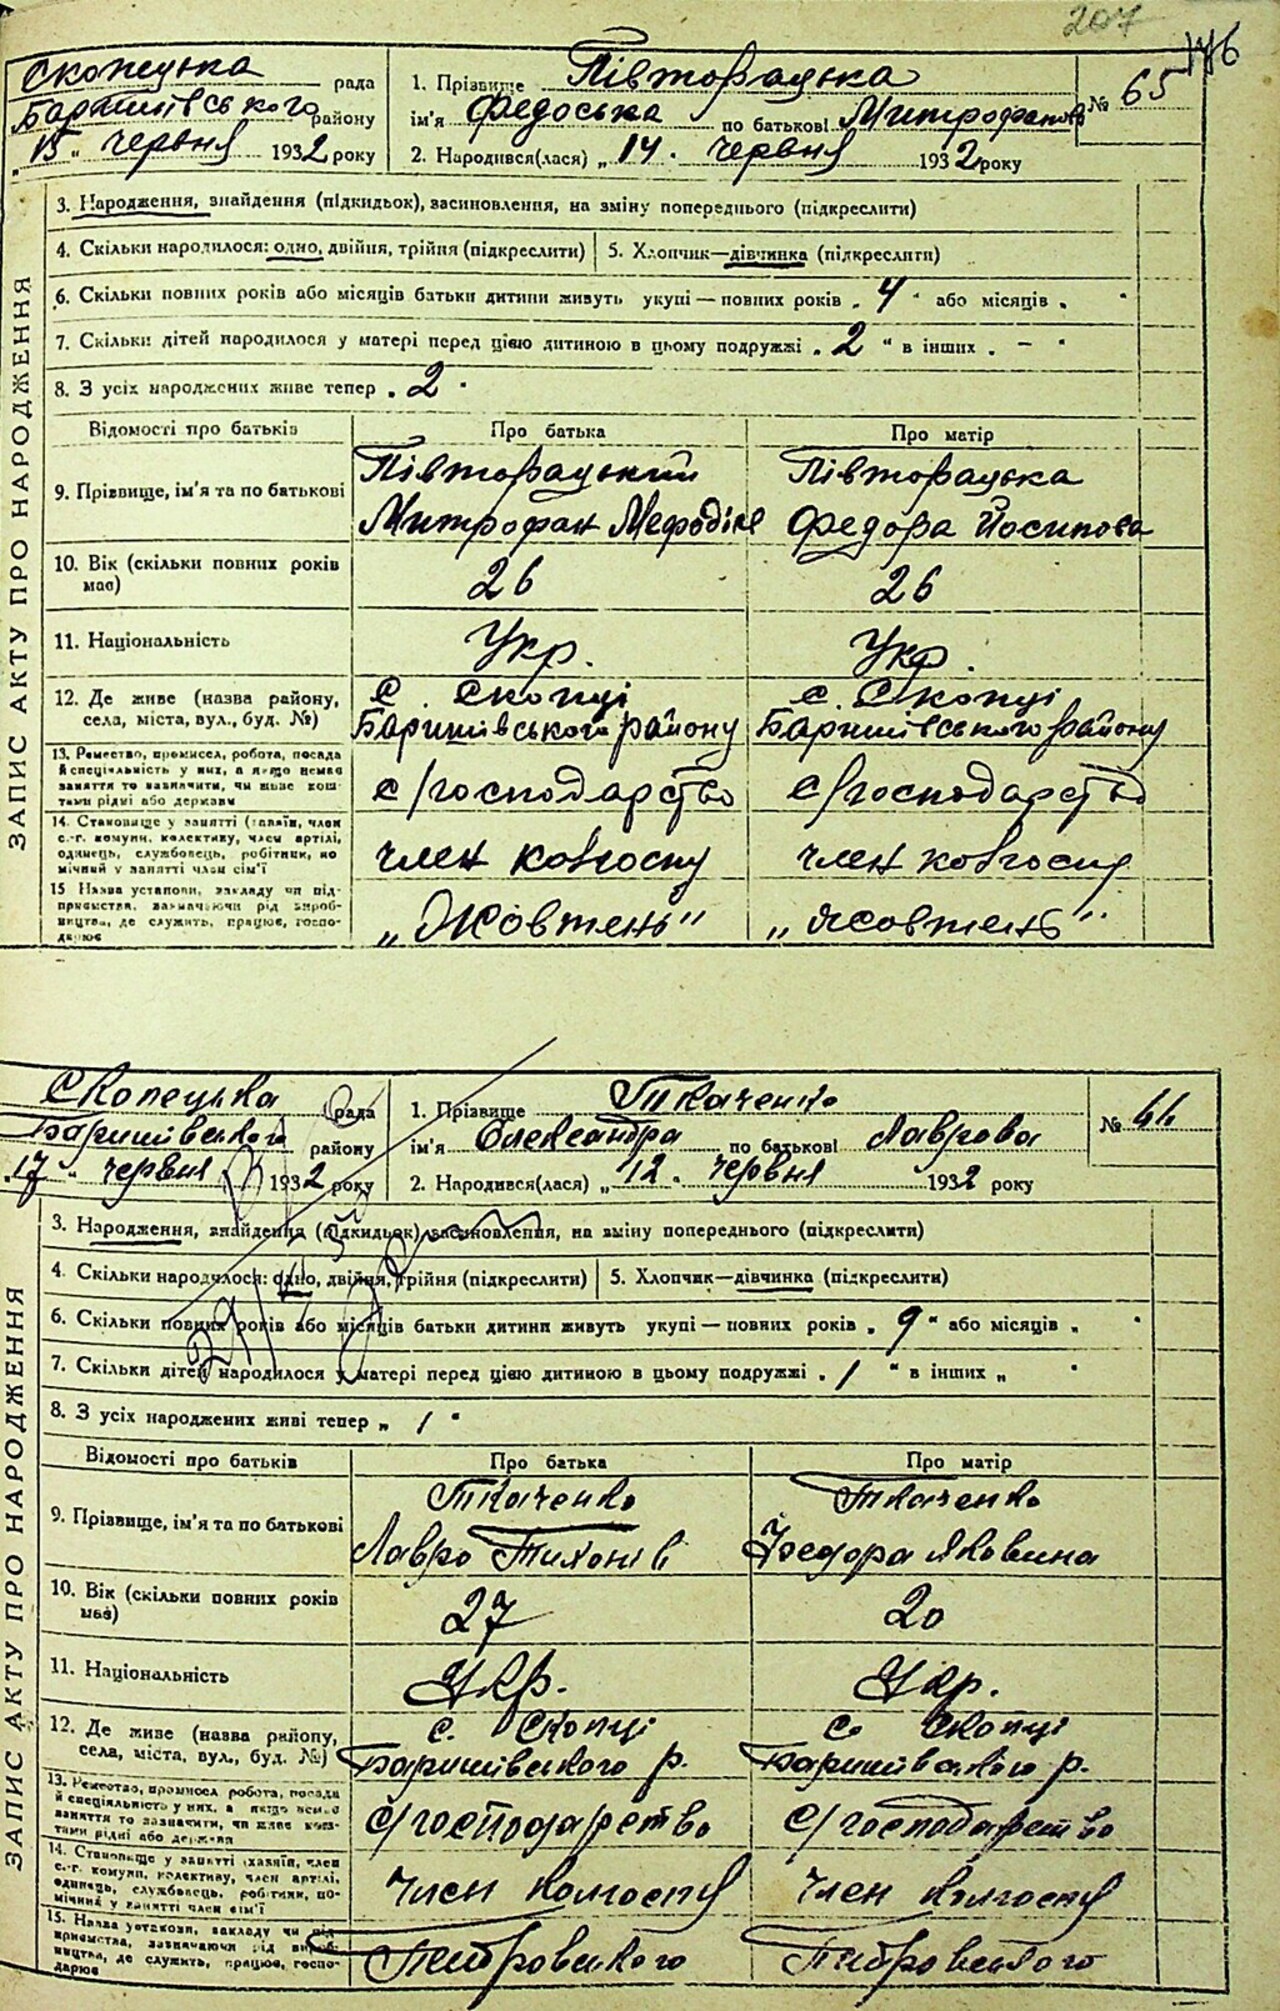 207
146
Скопецька рада
Баришівського району
15 „ червня 1932 року
1. Прізвище Півторацька
ім'я Федоська по батькові Митрофанова
2. Народився(лася) „ 14 . червня 1932 року
№ 65
ЗАПИС АКТУ ПРО НАРОДЖЕННЯ
3. Народження, знайдення (підкидьок), засиновлення, на зміну попереднього (підкреслити)
4. Скільки народилося: одно, двійня, трійня (підкреслити) 5. Хлопчик—дівчинка (підкреслити)
6. Скільки повних років або місяців батьки дитини живуть укупі — повних років „ 4 " або місяців „ "
7. Скільки дітей народилося у матері перед цією дитиною в цьому подружжі „ 2 " в інших „ — "
8. З усіх народжених живе тепер „ 2 "
Відомості про батьків Про батька Про матір
9. Прізвище, ім'я та по батькові
Півторацький
Митрофан Мефодіів
Півторацька
Федора Йосипова
10. Вік (скільки повних років має) 26 26
11. Національність Укр. Укр.
12. Де живе (назва району, села, міста, вул., буд. №)
с. Скопці
Баришівського району
с. Скопці
Баришівського району
13. Ремество, промисел, робота, посада
й спеціяльність у них, а якщо немає
заняття то зазначити, чи живе кош-
тами рідні або держави
с/господарство с/господарство
14. Становище у занятті (хазяїн, член
с.-г. комуни, колективу, член артілі,
одинець, службовець, робітник, по
мічний у занятті член сім'ї
член ковгоспу член ковгоспу
15 Назва установи, закладу чи під-
приємства, зазначаючи рід вироб-
ництва, де служить, працює, госпо-
дарює
„Жовтень" „Жовтень"
Скопецька рада
Баришівського району
17 „ червня 1932 року
1. Прізвище Ткаченко
ім'я Олександра по батькові Лаврова
2. Народився(лася) „ 12 . червня 1932 року
№ 66
ЗАПИС АКТУ ПРО НАРОДЖЕННЯ
3. Народження, знайдення (підкидьок) засиновлення, на зміну попереднього (підкреслити)
4. Скільки народилося: одно, двійня, трійня (підкреслити) 5. Хлопчик—дівчинка (підкреслити)
6. Скільки повних років або місяців батьки дитини живуть укупі — повних років „ 9 " або місяців „ "
7. Скільки дітей народилося у матері перед цією дитиною в цьому подружжі „ 1 " в інших „ "
8. З усіх народжених живі тепер „ 1 "
Відомості про батьків Про батька Про матір
9. Прізвище, ім'я та по батькові
Ткаченко
Лавро Тихонів
Ткаченко
Федора Яковина
10. Вік (скільки повних років має) 27 20
11. Національність Укр. Укр.
12. Де живе (назва району, села, міста, вул., буд. №)
с. Скопці
Баришівського р.
с. Скопці
Баришівського р.
13. Ремество, промисел робота, посада
й спеціяльність у них, а якщо немає
заняття то зазначити, чи живе кош-
тами рідні або держави
с/господарство с/господарство
14. Становище у занятті (хазяїн, член
с.-г. комуни, колективу, член артілі,
одинець, службовець, робітник, по-
мічний у занятті член сім'ї
член колгоспу член колгоспу
15. Назва установи, закладу чи під-
приємства, зазначаючи рід вироб-
ництва, де служить, працює, госпо-
дарює
Петровського Петровського